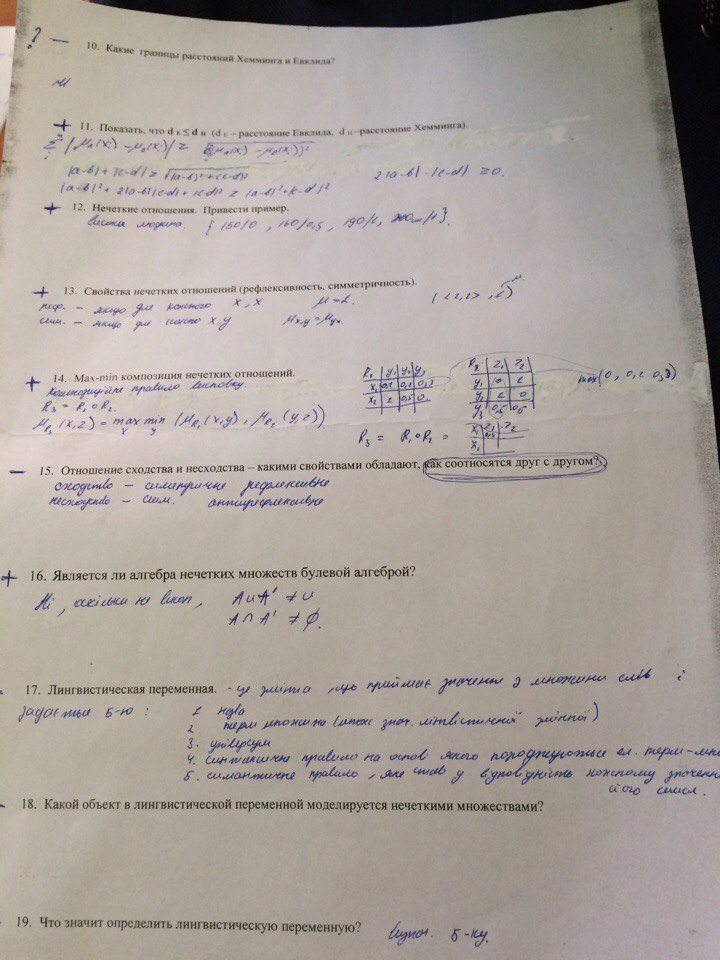 ? —
10. Какие границы расстояний Хемминга и Евклида?
+ 11. Показать, что d E ≤ d H (d E – расстояние Евклида, d H –расстояние Хемминга).
|a-b| + |c-d| ≥ √(a-b)²+(c-d)² 2|a-b|·|c-d| ≥ 0.
|a-b|² + 2|a-b||c-d| + |c-d|² ≥ |a-b|²+|c-d|²
+ 12. Нечеткие отношения. Привести пример.
людина { 150/0 , 160/0,5 , 190/1,
+ 13. Свойства нечетких отношений (рефлексивность, симметричность).
реф. – якщо для кожного x, x μ=1.
сим. – якщо для x, y μx,y=μyx
+ 14. Max-min композиция нечетких отношений.
Композиційне правило висновку
R3 = R1 ∘ R2.
μR3 (x,z) = max min (μR1(x,y), μR2(y,z))
R1 y1 y2 y3
R2 z1 z2
max(0, 0,2
R3 = R1 ∘ R2 =
— 15. Отношение сходства и несходства – какими свойствами обладают, как соотносятся друг с другом?
сходство – симетричне рефлексивне
несходство – сим. антирефлексивне
+ 16. Является ли алгебра нечетких множеств булевой алгеброй?
Ні, оскільки не викон, A∪A' ≠ U
A∩A' ≠ ∅.
17. Лингвистическая переменная. - це змінна, що приймає значення з множини слів і
задається 5-ю : 1 назва
2 терм множина (множ знач. лінгвістичної змінної)
3. універсум
4. синтаксичне правило на основі якого породжуються ел. терм-мно
5. симантичне правило, яке ставить у відповідність кожному значенн
його смисл.
18. Какой объект в лингвистической переменной моделируется нечеткими множествами?
19. Что значит определить лингвистическую переменную? 5-ку.